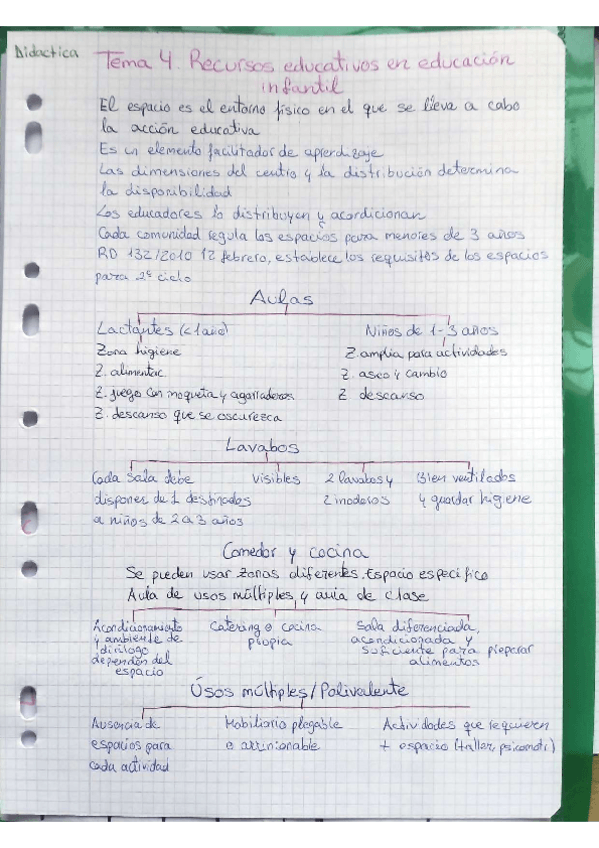 Didactica
Tema 4. Recursos educativos en educación
infantil
El espacio es el entorno físico en el que se lleva a cabo
la acción educativa
Es un elemento facilitador de aprendizaje
Las dimensiones del centro y la distribución determina
la disponibilidad
Los educadores lo distribuyen y acondicionan
Cada comunidad regula los espacios para menores de 3 años
RD 132/2010 12 febrero, establece los requisitos de los espacios
para 2º ciclo
Aulas
Lactantes (<1año) Niños de 1-3 años
Zona higiene Z. amplia para actividades
Z. alimentac Z. aseo y cambio
Z. juego con moqueta y agarraderos Z descanso
Z. descanso que se oscurezca
Lavabos
Cada sala debe visibles 2 lavabos y Bien ventilados
disponer de 1 destinados 2 inodoros y guardar higiene
a niños de 2 a 3 años
Comedor y cocina
Se pueden usar zonas diferentes. Espacio específico
Aula de usos múltiples y aula de clase
Acondicionamiento Catering o cocina Sala diferenciada,
y ambiente de propia acondicionada y
diálogo suficiente para preparar
dependen del alimentos
espacio
Usos múltiples/Polivalente
Ausencia de Mobiliario plegable Actividades que requieren
espacios para o arrinconable + espacio (taller, psicomotr)
cada actividad